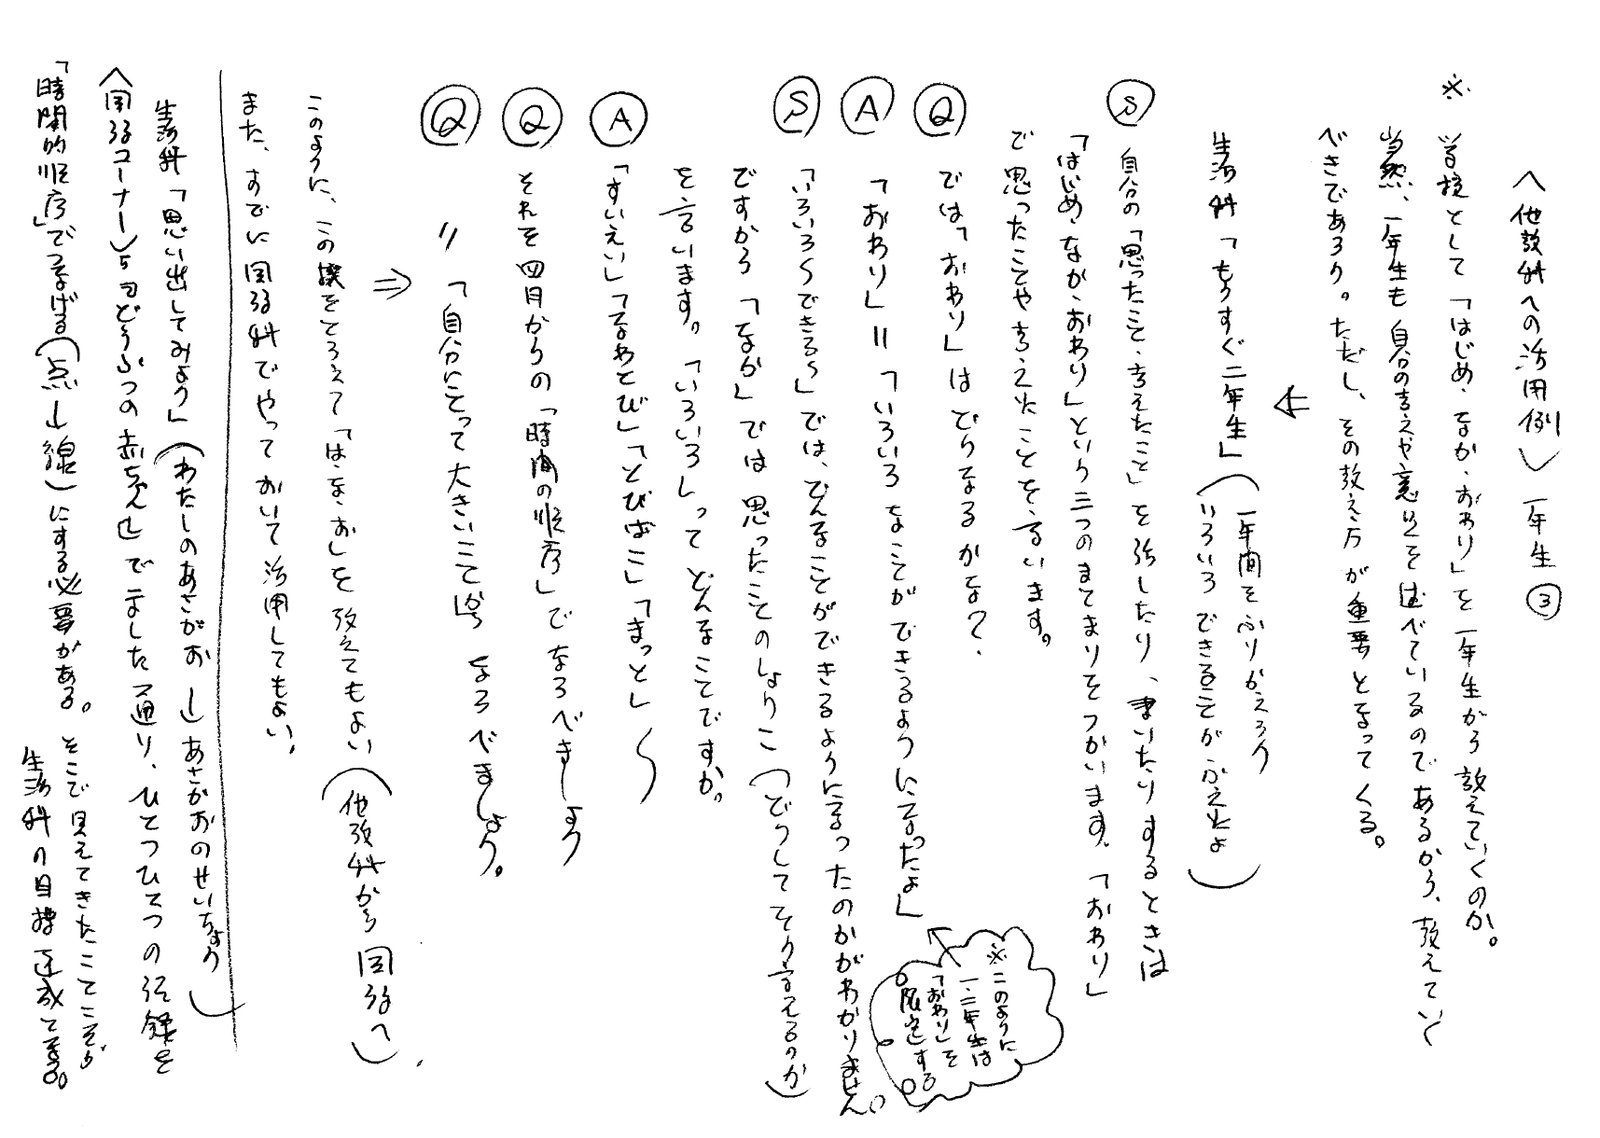 〈他教科への活用例〉一年生③
※学校として「はじめ・なか・おわり」を一年生から教えていくのか。
当然、一年生も自分の考えや意見を述べているのであるから、教えていく
べきであろう。ただし、その教え方が重要となってくる。
生活科「もうすぐ二年生」（一年間をふりかえろう
いろいろできることがふえたよ）
Ⓢ 自分の「思ったこと・考えたこと」を話したり、書いたりするときは
「はじめ・なか・おわり」という三つのまとまりをつかいます。「おわり」
で思ったことや考えたことを言います。
Ⓠ では「おわり」はどうなるかな？
Ⓐ 「おわり」＝「いろいろなことができるようになったよ」
※このように
一・二年生は
「おわり」を
限定する
Ⓢ 「いろいろできる〜」では、どんなことができるようになったのかがわかりません。
ですから「なか」では思ったことのしょうこ（どうしてそう言えるのか）
を言います。「いろいろ」ってどんなことですか。
Ⓐ 「すいえい」「なわとび」「とびばこ」「まっと」〜
Ⓠ それを四月からの「時間の順序」でならべましょう
Ⓠ 〃 「自分にとって大きいことから」ならべましょう。
⇒
このように、この機をとらえて「は・な・お」を教えてもよい（他教科から国語へ）
また、すでに国語科でやっておいて活用してもよい。
生活科「思い出してみよう」（わたしのあさがお→あさがおのせいちょう）
〈国語コーナー〉5『どうぶつの赤ちゃん』でました通り、ひとつひとつの記録を
「時間的順序」でつなげる（点→線）にする必要がある。そこで見えてきたことこそが
生活科の目標達成となる。